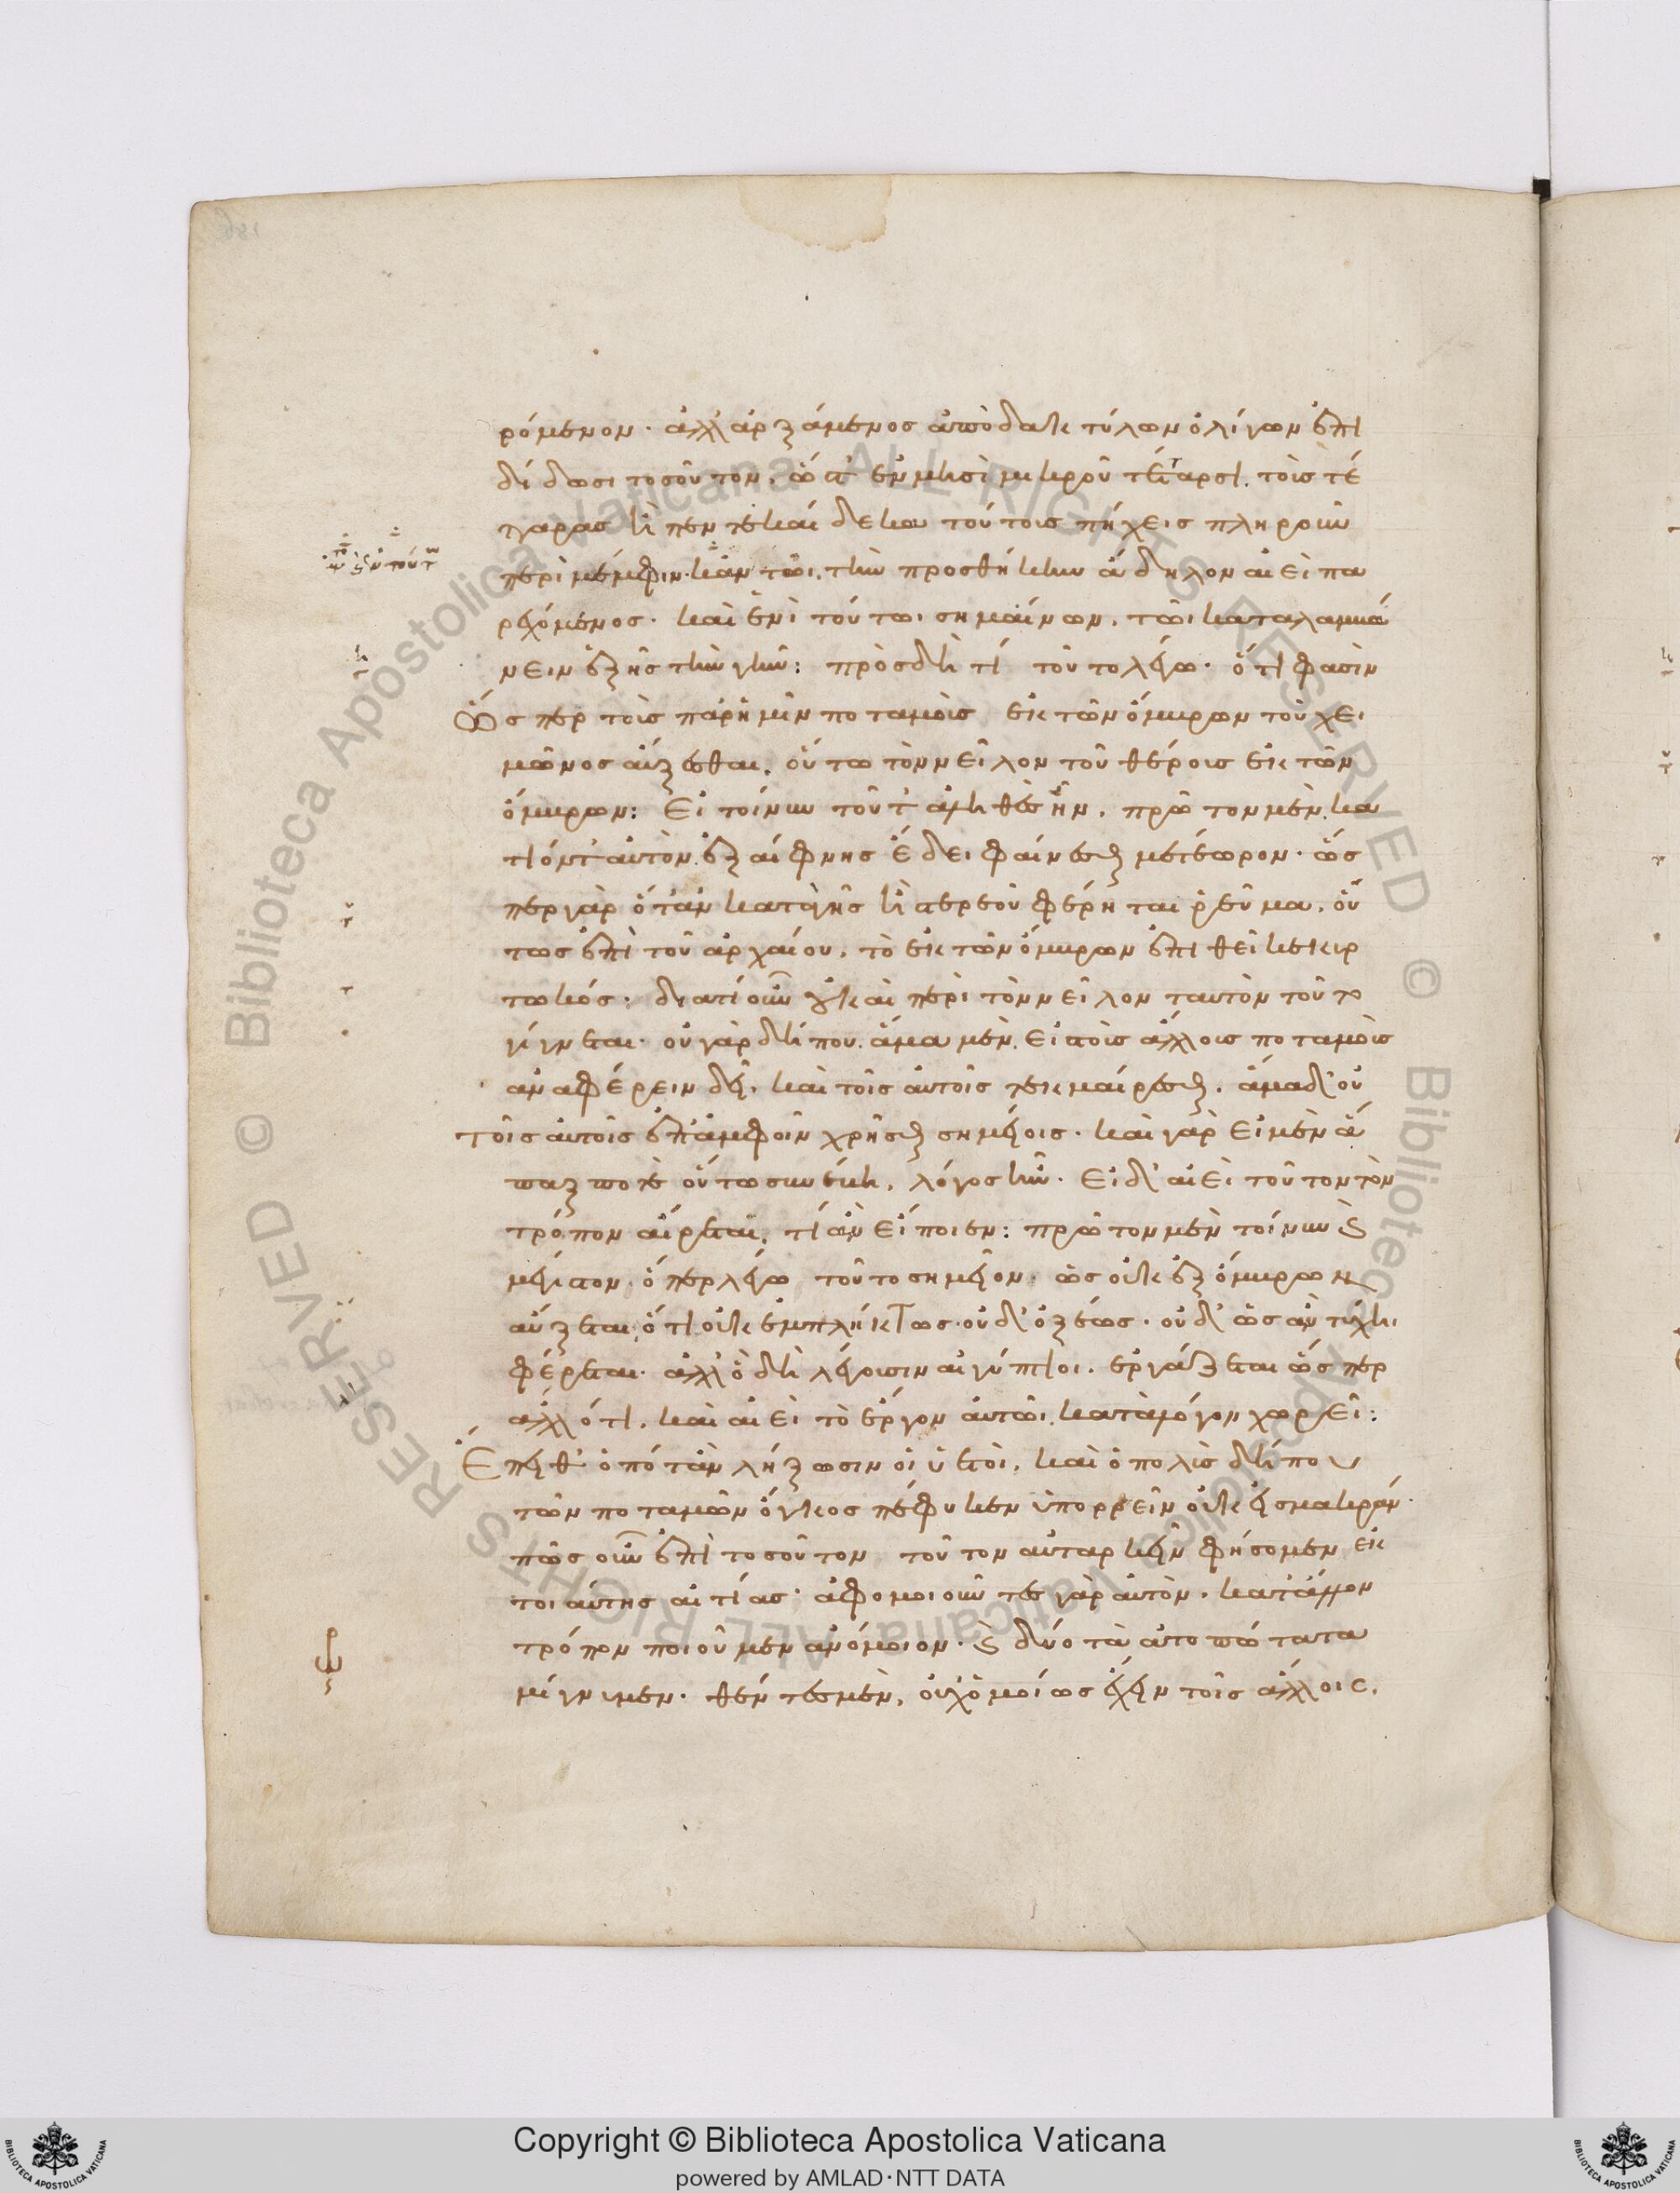 ρόμενον· ἀλλ' ἀρξάμενος ἀπὸ δακτύλων ὀλίγων ἐπι
δίδωσι τοσοῦτον, ὥστ' ἐν μησὶ μικροῦ τέτταρσι, τοῖς τέ
τταρας ἢ πεντεκαίδεκα τούτοις πήχεις πληροῦν
περὶ μέμφιν· κἀν τῶι τὴν προσθήκην ἄδηλον ἀεὶ πα
ρεχόμενος· καὶ ἑνὶ τούτωι σημαίνων, τῶι καταλαμβά
νειν ἑξῆς τὴν γῆν: πρὸς δὴ τί τοῦτο λέγω· ὅτι φασὶν
Ὥσπερ τοῖς παρ' ἡμῖν ποταμοῖς ἐκ τῶν ὄμβρων τοῦ χει
μῶνος αὔξεσθαι, οὕτω τὸν νεῖλον τοῦ θέρους ἐκ τῶν
ὄμβρων: Εἰ τοίνυν τοῦτ' ἀληθὲς ἦν, πρῶτον μὲν κα
τιόντ' αὐτὸν ἐξαίφνης ἔδει φαίνεσθαι μετέωρον· ὥσ
περ γὰρ ὅταν καταγῆς ἢ στερεοῦ φέρηται ῥεῦμα, οὕ
τως ἐπὶ τοῦ ἀρχαίου, τὸ ἐκ τῶν ὄμβρων ἐπιθεῖ κεκυρ
τωκός· διατί οὖν οὐκ αἰ περὶ τὸν νεῖλον ταυτὸν τοῦτο
γίγνεται· οὐ γὰρ δήπου ἅμα μὲν εἰς τοῖς ἄλλοις ποταμοῖς
ἀναφέρειν δεῖ, καὶ τοῖς αὐτοῖς τεκμαίρεσθαι, ἅμα δ' οὐ
τοῖς αὐτοῖς ἐπ' ἀμφοῖν χρῆσθαι σημείοις· καὶ γὰρ εἰ μὲν ἅ
παξ ποτὲ οὕτω συνέβη, λόγος ἦν· Εἰ δ' ἀεὶ τοῦτον τὸν
τρόπον αἴρεται, τί ἂν εἴποιεν: πρῶτον μὲν τοίνυν καὶ
μέγιστον, ὅπερ λέγω τοῦτο σημεῖον, ὡς οὐκ ἐξ ὄμβρων
αὔξεται, ὅτι οὐκ ἐμπλήκτως· οὐδ' ὀξέως· οὐδ' ὡς ἂν τύχηι
φέρεται· ἀλλ' ὃ δὴ λέγουσιν αἰγύπτιοι, ἐργάζεται ὥσπερ
ἄλλό τι, καὶ ἀεὶ τὸ ἔργον αὐτῶι κατὰ λόγον χωρεῖ:
Ἔπειθ' ὁπόταν λήξωσιν οἱ ὑετοί, καὶ ὁ πολὺς δήπου
τῶν ποταμῶν ὄγκος πέφυκεν ὑπορρεῖν οὐκ εἰς μακράν·
πῶς οὖν ἐπὶ τοσοῦτον τοῦτον αὐταρκεῖν φήσομεν ἐκ
τοιαύτης αἰτίας· ἀφομοιοῦντες γὰρ αὐτὸν, κατ' ἄλλον
τρόπον ποιοῦμεν ἀνόμοιον· καὶ δύο τὰ ἀτοπώτατα
μίγνυμεν· θέντες μὲν, οὐχ ὁμοίως ἔχειν τοῖς ἄλλοις,